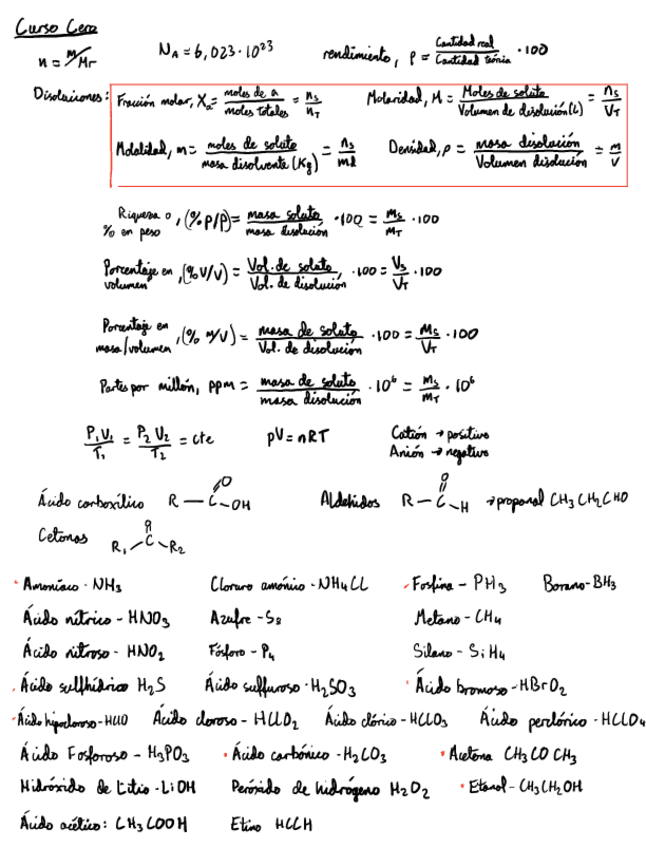 Curso Cero
n = m/Mr    N_A = 6,023·10^23    rendimiento, ρ = Cantidad real/Cantidad teórica · 100
Disoluciones: Fracción molar, X_a = moles de a/moles totales = n_s/n_T    Molaridad, M = Moles de soluto/Volumen de disolución (L) = n_s/V_T
Molalidad, m = moles de soluto/masa disolvente (Kg) = n_s/md    Densidad, ρ = masa disolución/Volumen disolución = m/v
Riqueza o % en peso, (% p/p) = masa soluto/masa disolución · 100 = m_s/m_T · 100
Porcentaje en volumen, (% v/v) = Vol. de soluto/Vol. de disolución · 100 = V_s/V_T · 100
Porcentaje en masa/volumen, (% m/v) = masa de soluto/Vol. de disolución · 100 = m_s/V_T · 100
Partes por millón, ppm = masa de soluto/masa disolución · 10^6 = m_s/m_T · 10^6
P₁V₁/T₁ = P₂V₂/T₂ = cte    pV = nRT    Catión → positivo
Anión → negativo
Ácido carboxílico R—C(=O)—OH    Aldehidos R—C(=O)—H → propanal CH3CH2CHO
Cetonas R₁—C(=O)—R₂
· Amoníaco · NH3    Cloruro amónico - NH4CL    · Fosfina - PH3    Borano - BH3
Ácido nítrico - HNO3    Azufre - S8    Metano - CH4
Ácido nitroso - HNO2    Fósforo - P4    Silano - SiH4
· Ácido sulfhídrico H2S    Ácido sulfuroso · H2SO3    · Ácido bromoso - HBrO2
· Ácido hipocloroso - HClO    Ácido cloroso - HCLO2    Ácido clórico - HCLO3    Ácido perclórico - HCLO4
Ácido Fosforoso - H3PO3    · Ácido carbónico - H2CO3    · Acetona CH3COCH3
Hidróxido de Litio - LiOH    Peróxido de hidrógeno H2O2    · Etanol - CH3CH2OH
Ácido acético: CH3COOH    Etino HCCH